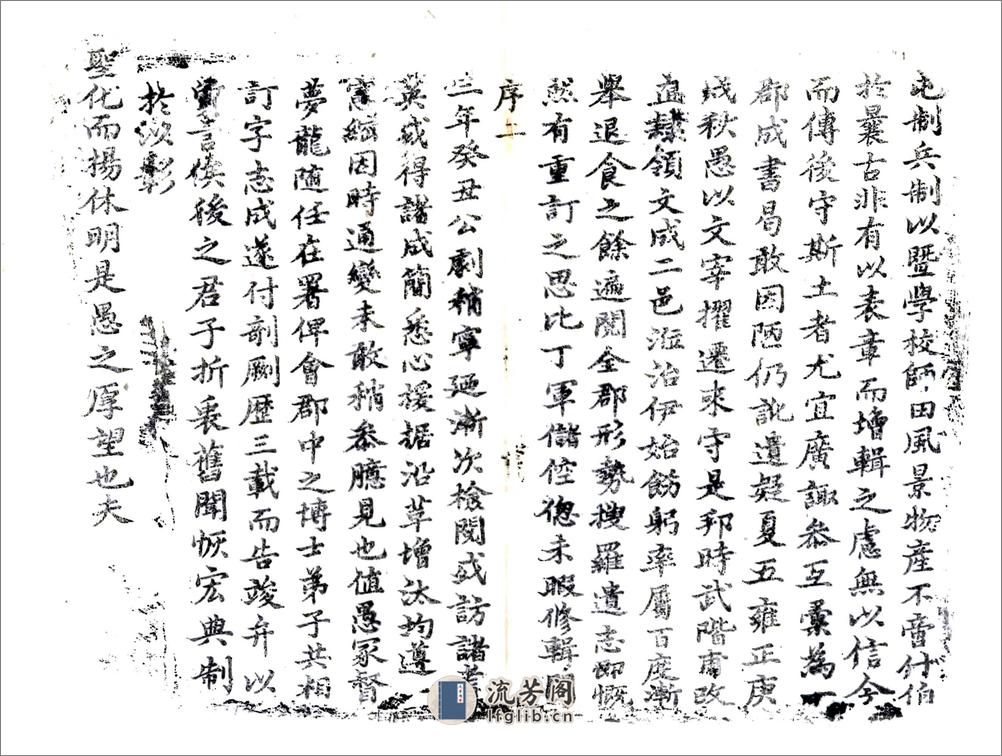 屯制兵制以暨學校師田風景物產不啻什伯
於曩古非有以表章而增輯之慮無以信今
而傳後守斯土者尤宜廣諏參互彙為一
郡成書曷敢因陋仍訛遺疑夏五雍正庚
戌秋愚以文宰擢遷來守是邦時武階甫改
直隸領文成二邑涖治伊始飭躬率屬百度漸
舉退食之餘遍閱全郡形勢搜羅遺志卹慨
然有重訂之思比丁軍儲倥傯未暇修輯
序二
三年癸丑公劇稍寧廼漸次檢閱或訪諸
英或得諸成簡悉心援据沿革增汰均遵
憲綱因時通變未敢稍參臆見也值愚冢督
夢龍隨任在署俾會郡中之博士弟子共相
訂字志成遂付剞劂歷三載而告竣弁以
言俟後之君子折衷舊聞恢宏典制
於以彰
聖化而揚休明是愚之厚望也夫
流芳閣
lfglib.cn